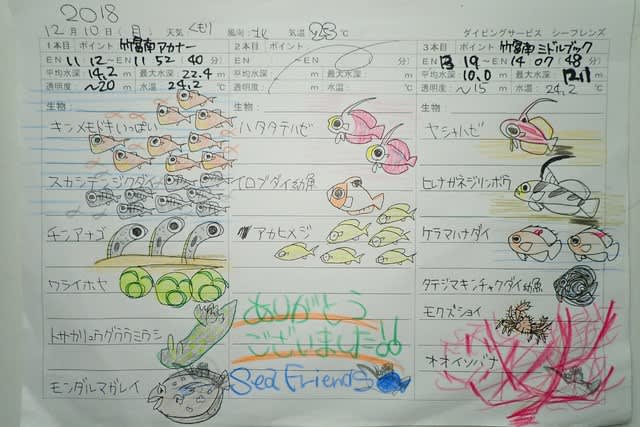 2018
12月10日(月) 天気 くもり 風向:北 気温 23℃ ダイビングサービス シーフレンズ
1本目 ポイント 竹富南アカナー
EN 11:12～EN 11:52 (40分)
平均水深:14.2m 最大水深:22.4m
透明度:～20m 水温:24.2℃
生物:
キンメモドキいっぱい
スカシテンジクダイ
チンアナゴ
ワライボヤ
トサカリュウグウウミウシ
モンダルマガレイ
2本目 ポイント
EN : ～EN : ( 分)
平均水深: m 最大水深: m
透明度: m 水温: ℃
生物:
ハタタテハゼ
イロブダイ幼魚
アカヒメジ
ありがとう
ございました!!
Sea Friends
3本目 ポイント 竹富南ミドルブック
EN 13:19～EN 14:07 (48分)
平均水深:10.0m 最大水深:12.1m
透明度:～15m 水温:24.2℃
生物:
ヤシャハゼ
ヒレナガネジリンボウ
ケラマハナダイ
タテジマキンチャクダイ幼魚
モクズショイ
オオイソバナ